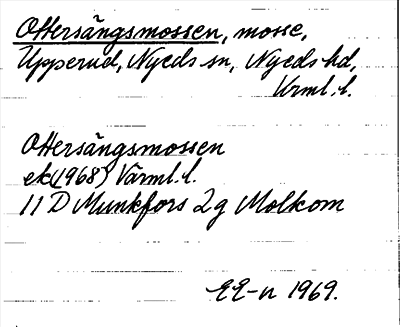 Ottersängsmossen, mosse,
Upperud, Nyeds sn, Nyeds hd,
Vrml. l.
Ottersängsmossen
ek (1968) Värml. l.
11 D Munkfors 2g Molkom
EE-n 1969.